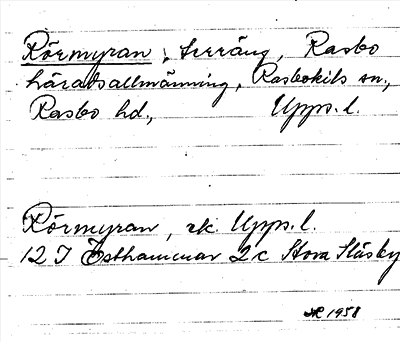 Rörmyran, terräng, Rasbo
häradsallmänning, Rasbokils sn.,
Rasbo hd., Upps. l.
Rörmyran, rk. Upps. l.
12 I Östhammar 2 c Stora Häsby
1958